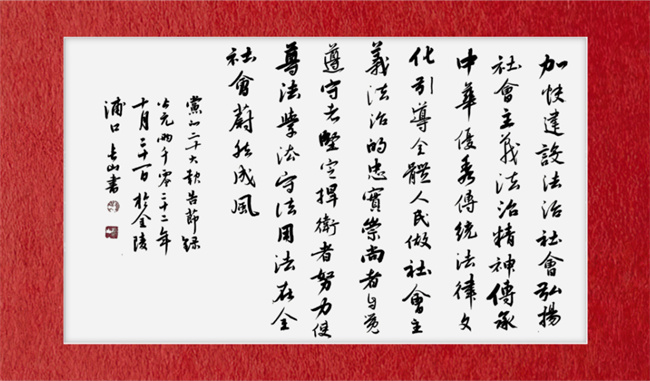 加快建設法治社會弘揚
社會主義法治精神傳承
中華優秀傳統法律文
化引導全體人民做社會主
義法治的忠實崇尚者自覺
遵守者堅定捍衛者努力使
尊法學法守法用法在全
社會蔚然成風
黨的二十大報告節錄
公元兩千零二十二年
十月二十一日於金陵
浦口 山書